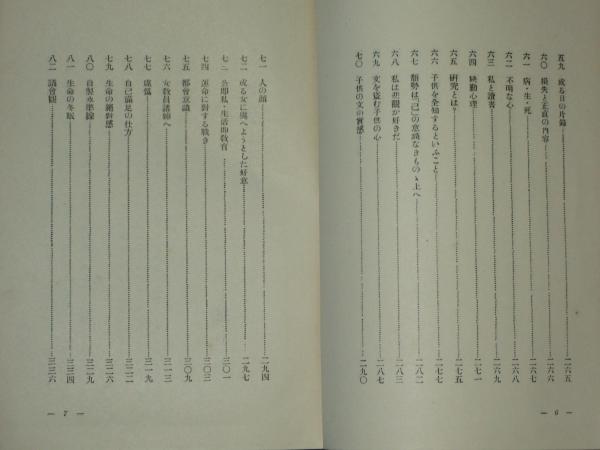 五九 或る日の片錄……二六五
六〇 損失と正直の內容……二六六
六一 病・生・死……二六七
六二 不明な心……二六八
六三 私と讀書……二六九
六四 缺勤心理……二七一
六五 硏究とは?……二七五
六六 子供を全知するといふこと……二七七
六七 顏勢は「己」の意識なきものゝ上へ……二八二
六八 私は悲觀が好きだ……二八三
六九 文を盜む子供の心……二八七
七〇 子供の文の實感……二九〇
— 6 —
七一 人の顏……二九四
七二 或る女に與へようとした好意……二九七
七三 公卽私・生活卽敎育……三〇一
七四 運命に對する戰き……三〇三
七五 都會意識……三〇九
七六 女敎員講師へ……三一三
七七 庭……三一九
七八 自己滿足の仕方……三二二
七九 生命の絕對感……三二六
八〇 自製水準線……三二九
八一 生命の冬眠……三三四
八二 議會觀……三三六
— 7 —